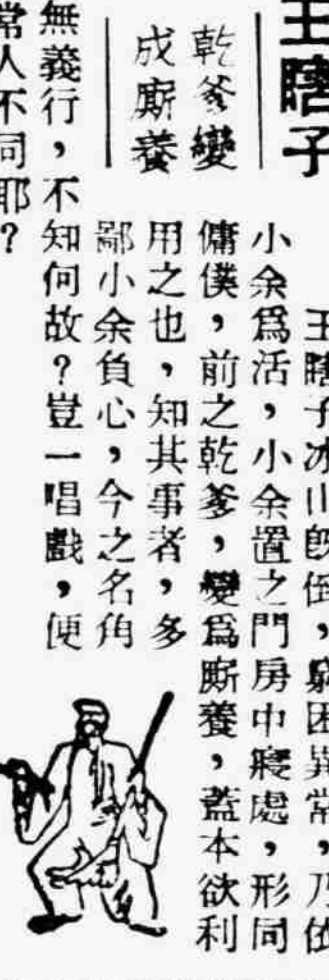 王瞎子
乾爹變
成廝養
王瞎子冰山既倒，窮困異常，乃依
小余爲活，小余置之門房中寢處，形同
傭僕，前之乾爹，變爲廝養，蓋本欲利
用之也，知其事者，多
鄙小余負心，今之名角
無義行，不知何故？豈一唱戲，便
常人不同耶？